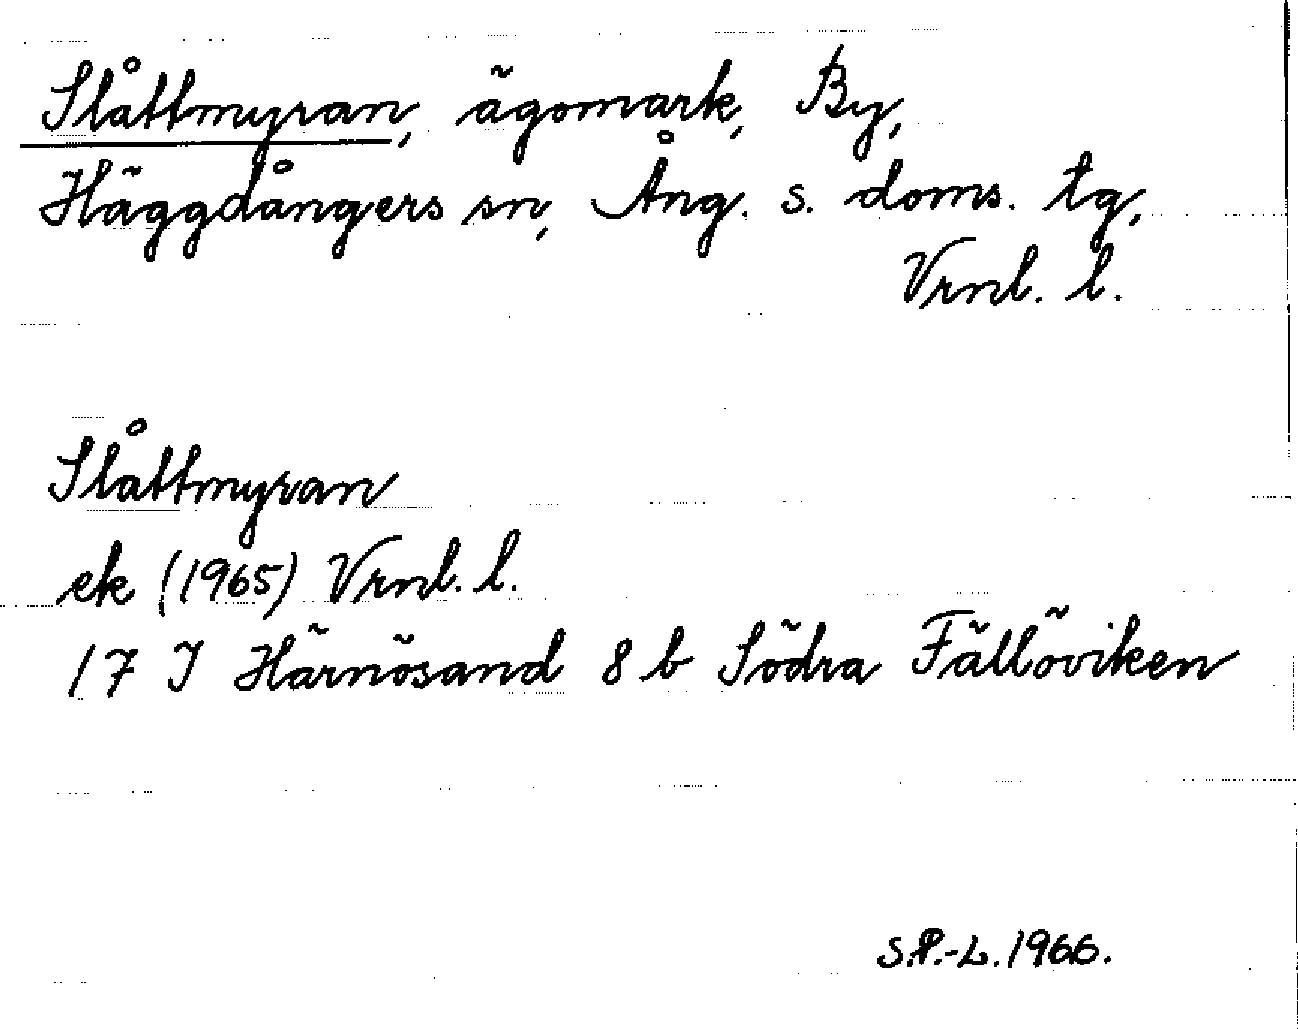 Slåttmyran, ägomark, By,
Häggdångers sn, Ång. s. doms. tg,
Vrnl. l.
Slåttmyran
ek (1965) Vrnl. l.
17 I Härnösand 8 b Södra Fällöviken
S.P.-L. 1966.